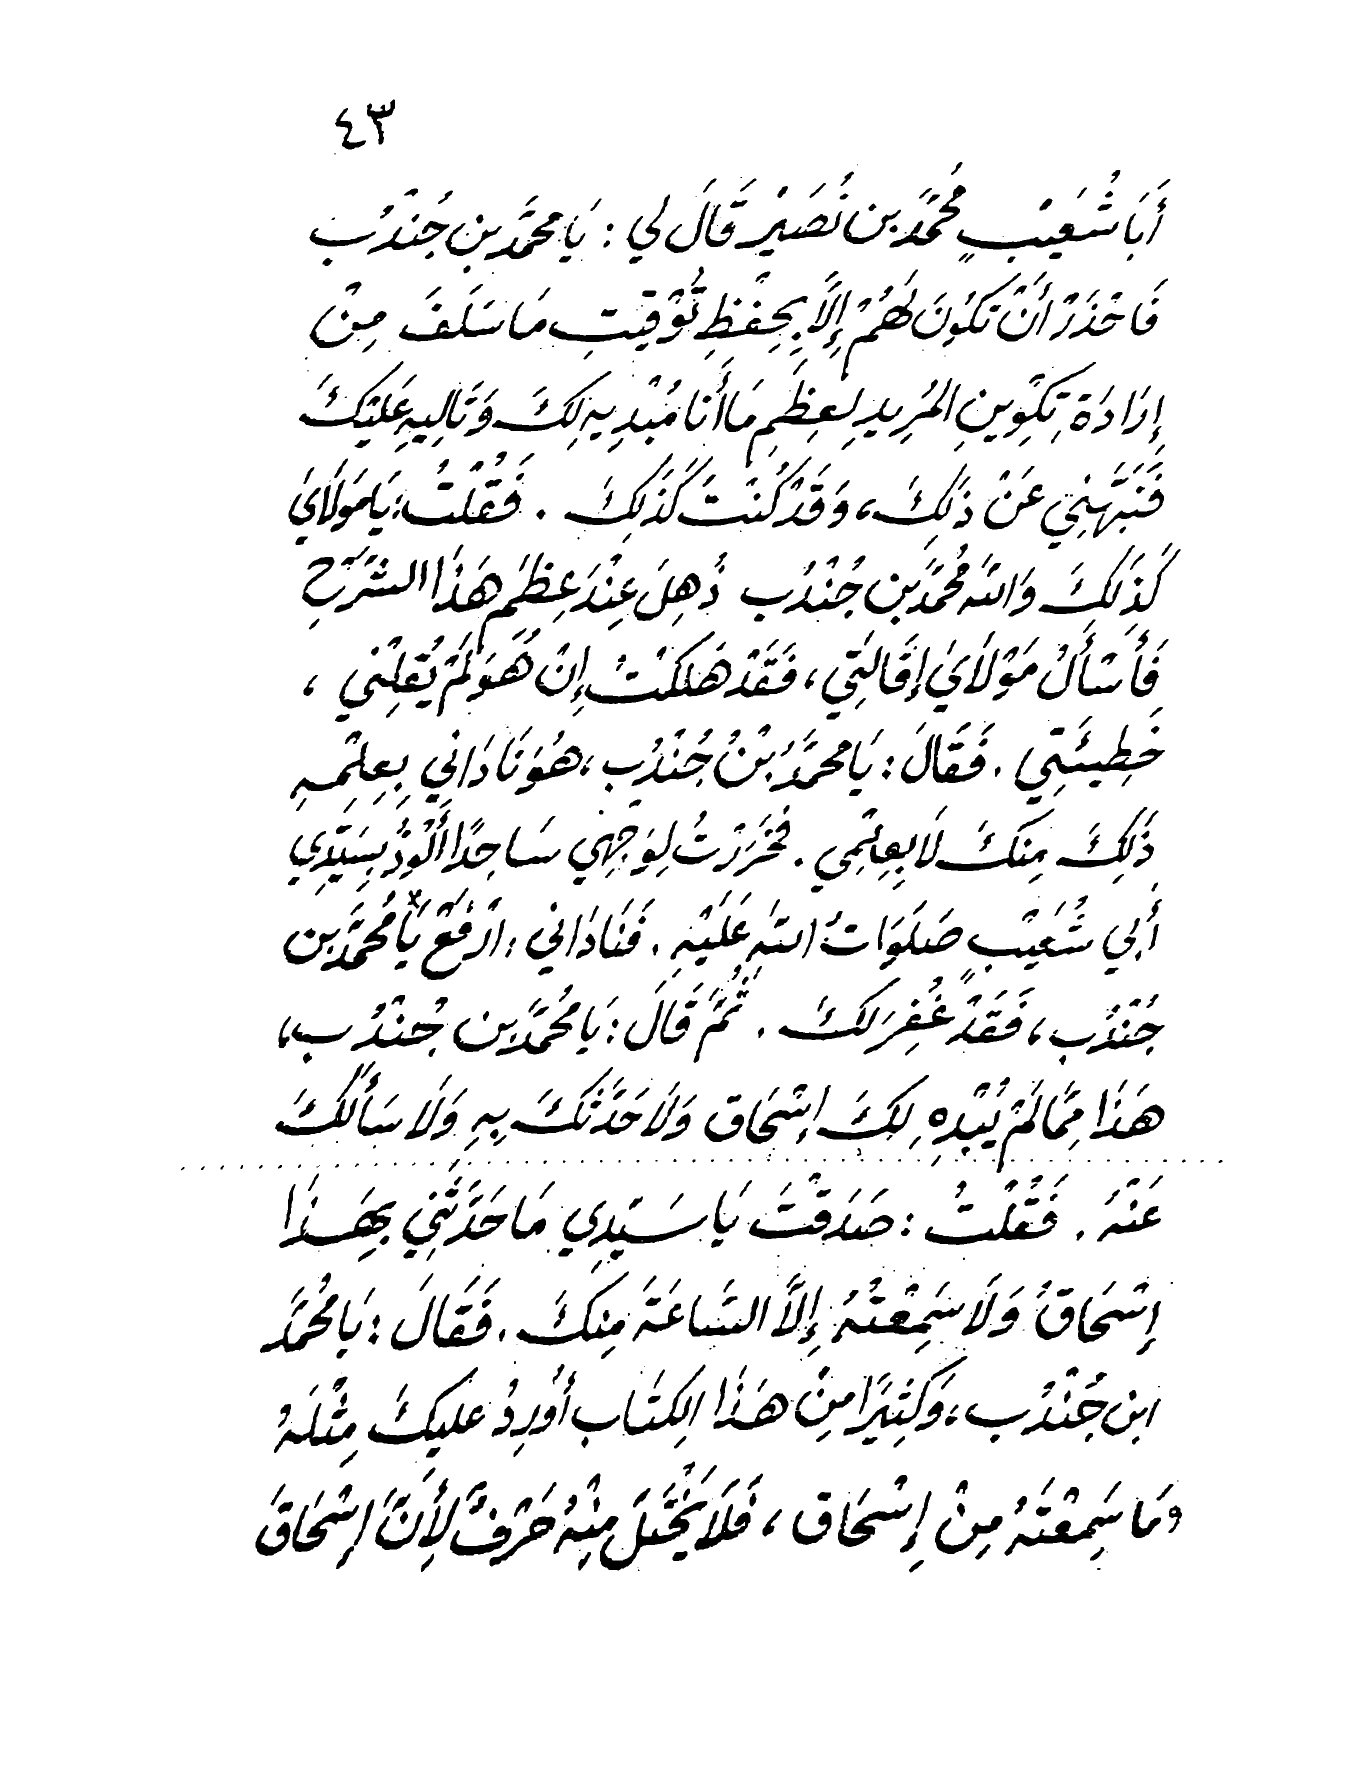 ٤٣
أَبَا شُعَيْبٍ مُحَمَّدَ بن نُصَيْرْ قَالَ لي : يَا محمَّد بِن جُنْدُب
فَاحْذَرْ أَنْ تَكُونَ لَهُمْ إِلَّا بِحِفْظِ تَوْقِيتِ مَا سَلَفَ مِنْ
إِرَادَةِ تَكْوِينِ المُرِيدِ لِعِظَمِ مَا أَنَا مُبْدِيهِ لَكَ وَتَالِيهِ عَلَيْكَ
فَنَبَّهَنِي عَنْ ذَلِكَ ، وَقَدْ كُنْتَ كَذَلِكَ . فَقُلْتُ : يَا مَوْلَايَ
كَذَلِكَ وَاللَّه مُحَمَّد بن جُنْدُب ذُهِلَ عِنْدَ عِظَمِ هَذَا الشَّرْحِ
فَأَسْأَلُ مَوْلَايَ إِقَالَتِي ، فَقَدْ هَلَكْتُ إِنْ هُوَ لَمْ يُقِلْنِي ،
خَطِيئَتِي . فَقَالَ : يَا محمَّدُ بْنُ جُنْدُب ، هُوَ نَادَانِي بِعِلْمِهِ
ذَلِكَ مِنْكَ لَا بِعِلْمِي . فَخَرَرْتُ لِوَجْهِي سَاجِدًا أَلُوذُ بِسَيِّدِي
أَبي شُعَيْبٍ صَلَوَاتُ اللَّه عَلَيْهِ . فَنَادَانِي : ارْفَعْ يَا مُحَمَّد بن
جُنْدُب ، فَقَدْ غُفِرَ لَكَ . ثُمَّ قَالَ : يَا مُحَمَّد بن جُنْدُب ،
هَذَا مِمَّا لَمْ يُبْدِهِ لَكَ إِسْحَاق وَلَا حَدَّثَكَ بِهِ وَلَا سَأَلَكَ
عَنْهُ . فَقُلْتُ : صَدَقْتَ يَا سَيِّدِي مَا حَدَّثَنِي بِهَذَا
إِسْحَاقُ وَلَا سَمِعْتُهُ إِلَّا السَّاعَةَ مِنْكَ . فَقَالَ : يَا مُحَمَّدُ
ابن جُنْدُب ، وَكَثِيرًا مِنْ هَذَا الكِتَاب أُورِدُ عليكَ مِثْلَهُ
وَمَا سَمِعْتَهُ مِنْ إِسْحَاق ، فَلَا يَخْتَلَّ مِنْهُ حَرْفٌ لأَنَّ إِسْحَاقَ